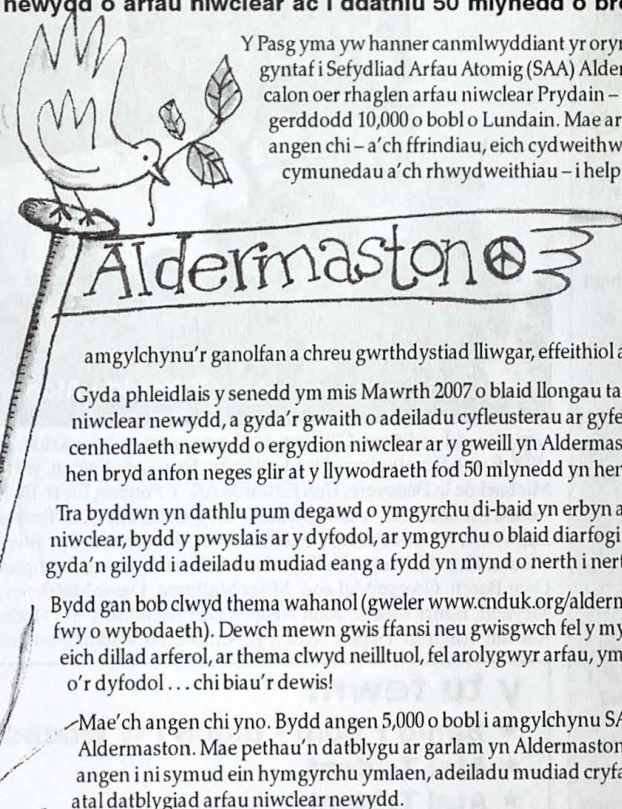 newydd o arfau niwclear ac i ddathlu 50 mlynedd o
Y Pasg yma yw hanner canmlwyddiant yr
gyntaf i Sefydliad Arfau Atomig (SAA)
calon oer rhaglen arfau niwclear Prydain –
gerddodd 10,000 o bobl o Lundain. Mae
angen chi – a'ch ffrindiau, eich
cymunedau a'ch rhwydweithiau – i
Aldermaston
amgylchynu'r ganolfan a chreu gwrthdystiad lliwgar, effeithiol
Gyda phleidlais y senedd ym mis Mawrth 2007 o blaid llongau
niwclear newydd, a gyda'r gwaith o adeiladu cyfleusterau ar
cenhedlaeth newydd o ergydion niwclear ar y gweill yn
hen bryd anfon neges glir at y llywodraeth fod 50 mlynedd yn
Tra byddwn yn dathlu pum degawd o ymgyrchu di-baid yn erbyn
niwclear, bydd y pwyslais ar y dyfodol, ar ymgyrchu o blaid
gyda'n gilydd i adeiladu mudiad eang a fydd yn mynd o nerth i
Bydd gan bob clwyd thema wahanol (gweler
fwy o wybodaeth). Dewch mewn gwis ffansi neu gwisgwch fel y
eich dillad arferol, ar thema clwyd neilltuol, fel arolygwyr arfau,
o'r dyfodol . . . chi biau'r dewis!
Mae'ch angen chi yno. Bydd angen 5,000 o bobl i amgylchynu
Aldermaston. Mae pethau'n datblygu ar garlam yn Aldermaston
angen i ni symud ein hymgyrchu ymlaen, adeiladu mudiad
atal datblygiad arfau niwclear newydd.